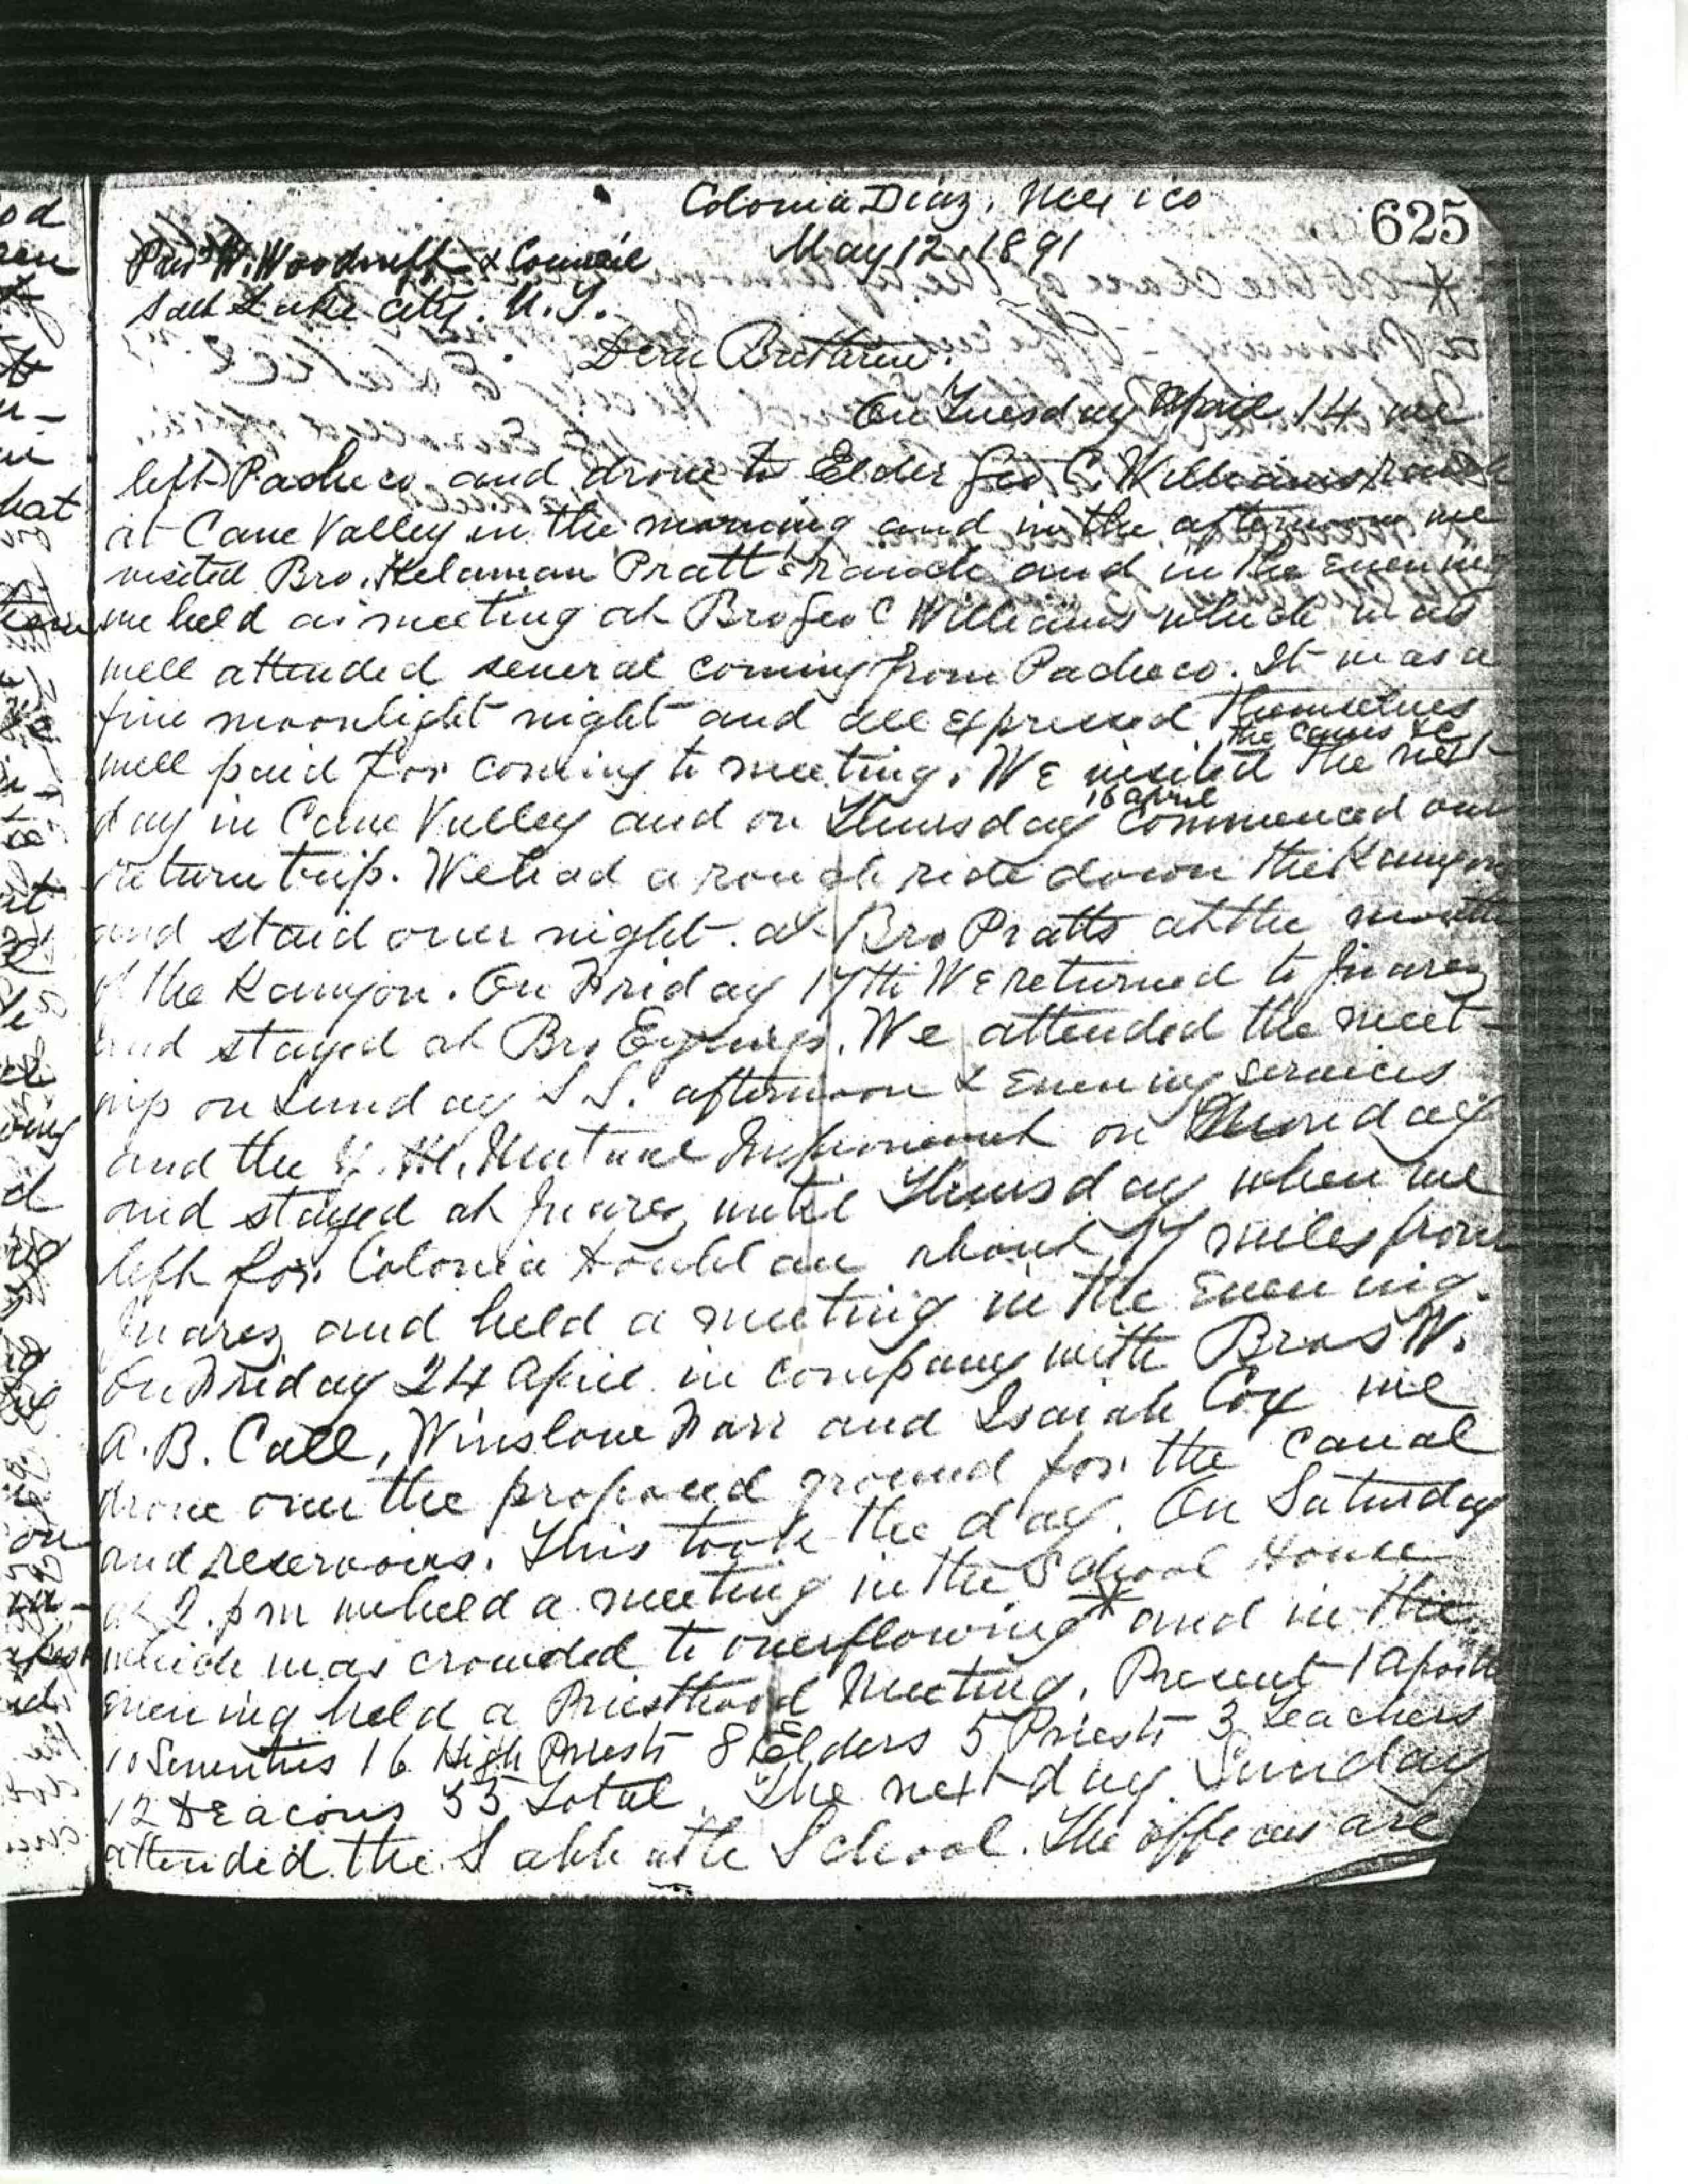 625
Colonia Diaz, Mexico
May 12, 1891
Prest W. Woodruff & Council
Salt Lake City. U.T.
Dear Brethren.
On Tuesday April 14 we
left Pacheco and drove to Elder Geo C. Williams ranch
at Cave Valley in the morning and in the afternoon we
visited Bro. Helaman Pratt's ranch and in the evening
we held a meeting at Bro Geo C Williams which was
well attended several coming from Pacheco. It was a
fine moonlight night and all expressed themselves
well paid for coming to meeting. We visited the caves &c the next
day in Cave Valley and on Thursday 16 april commenced our
return trip. We had a rough ride down the Kanyon
and staid over night at Bro Pratts at the mouth
of the Kanyon. On Friday 17th We returned to Juarez
and stayed at Bro Eyrings. We attended the meet-
ings on Sunday S S. afternoon & Evening services
and the Y. M. Mutual Improvement on Monday
and stayed at Juarez until Thursday when we
left for Colonia Dublan about 17 miles from
Juarez and held a meeting in the Evening.
On Friday 24 April in company with Bros W.
A. B. Call, Winslow Farr and Isaiah Cox we
drove over the proposed ground for the canal
and reservoirs. This took the day. On Saturday
at 2. pm we held a meeting in the School House
which was crowded to overflowing* and in the
evening held a Priesthood Meeting. Present 1 Apostle
10 Seventies 16 High Priests 8 Elders 5 Priests 3 Teachers
12 Deacons 55 Total. The next day Sunday
attended the Sabbath School. The officers are